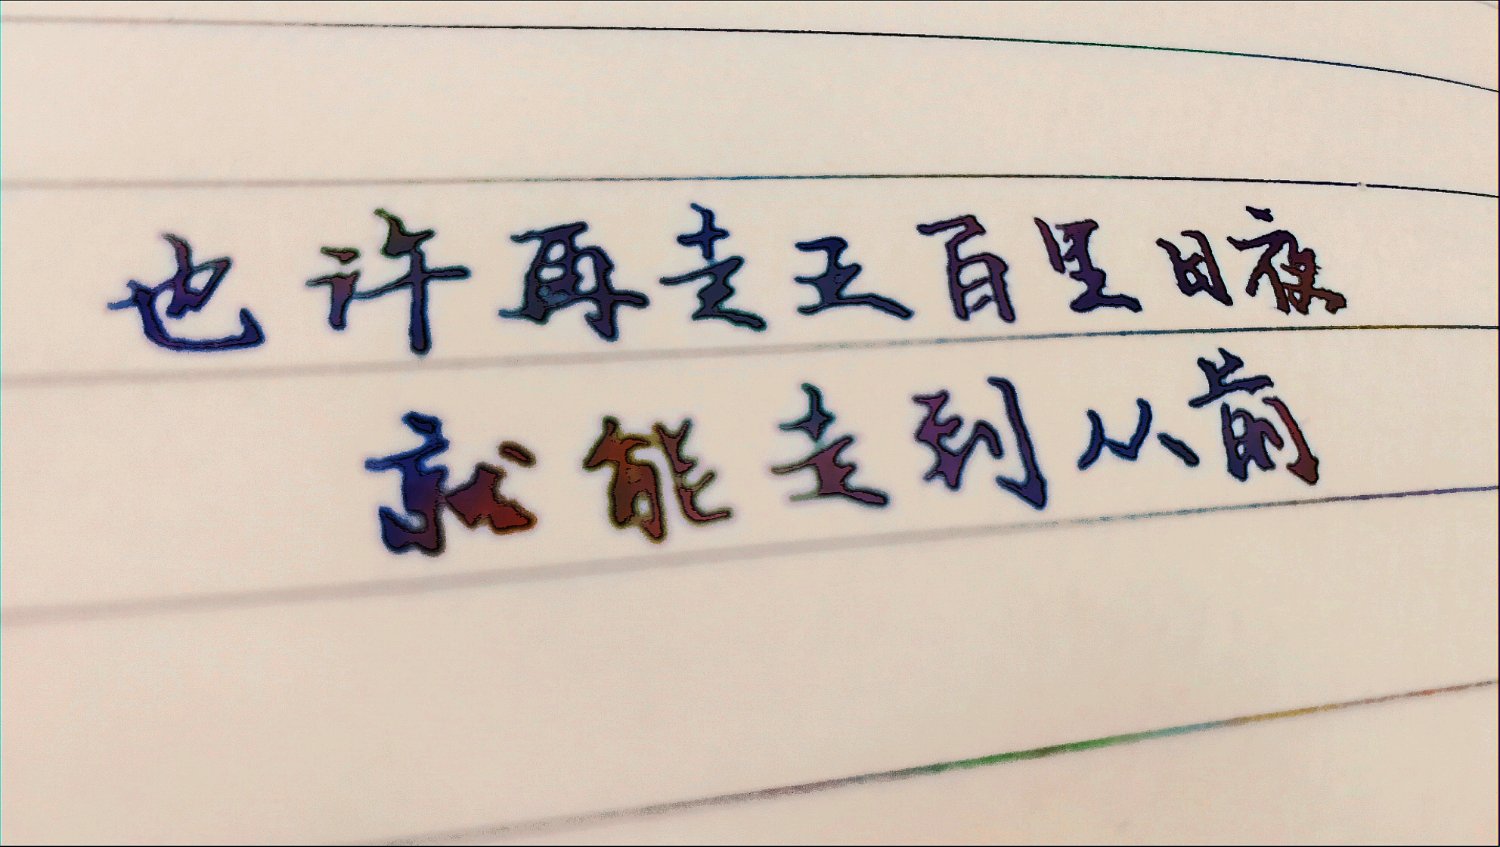 也许再走五百里日夜
就能走到从前